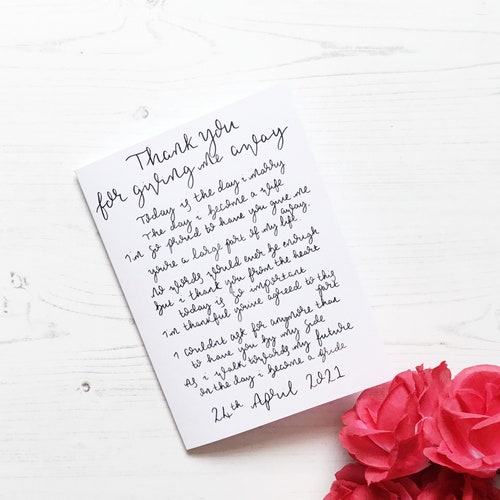 Thank you
for giving me away
Today is the day i marry
The day i become a wife
I'm so proud to have you give me
away.
you're a large part of my life
No words would ever be enough
but i thank you from the heart
today is so important
I'm thankful you've agreed to this
part
I couldn't ask for anymore than
to have you by my side
As i walk towards my future
on the day i become a bride
24th April 2021